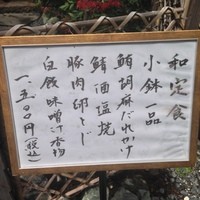 和定食
小鉢一品
鮪胡麻だれかけ
鯖酒塩焼
豚肉卵とじ
白飯味噌汁香物
一、五〇〇円(税込)